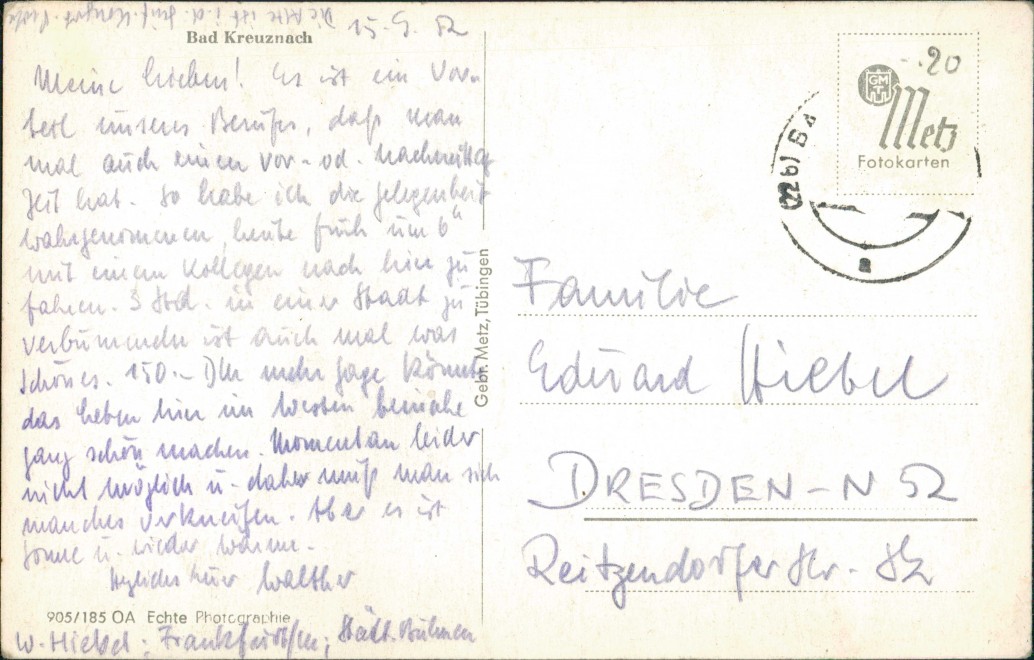 Bad Kreuznach
15. 9. 52
Meine Lieben! Es ist ein Vor-
teil unseres Berufes, daß man
mal auch einen Vor- od. Nachmittag
Zeit hat. So habe ich die Gelegenheit
wahrgenommen, heute früh um 6
mit einem Kollegen nach hier zu
fahren. 3 Std. in einer Stadt zu
verbummeln ist auch mal was
Schönes. 150.- DM mehr Gage könnte
das Leben hier im Westen beinahe
ganz schön machen. Momentan leider
nicht möglich u. daher muß man sich
manches verkneifen. Aber es ist
Sonne u. wieder warm.
Herzliches Euer Walther
905/185 OA Echte Photographie
W. Hiebel; Frankfurt/M; Städt. Bühnen
Gebr. Metz, Tübingen
-.20
GMT
Metz
Fotokarten
(22b) B
a
Familie
Eduard Hiebel
DRESDEN-N 52
Reitzendorfer Str. 82